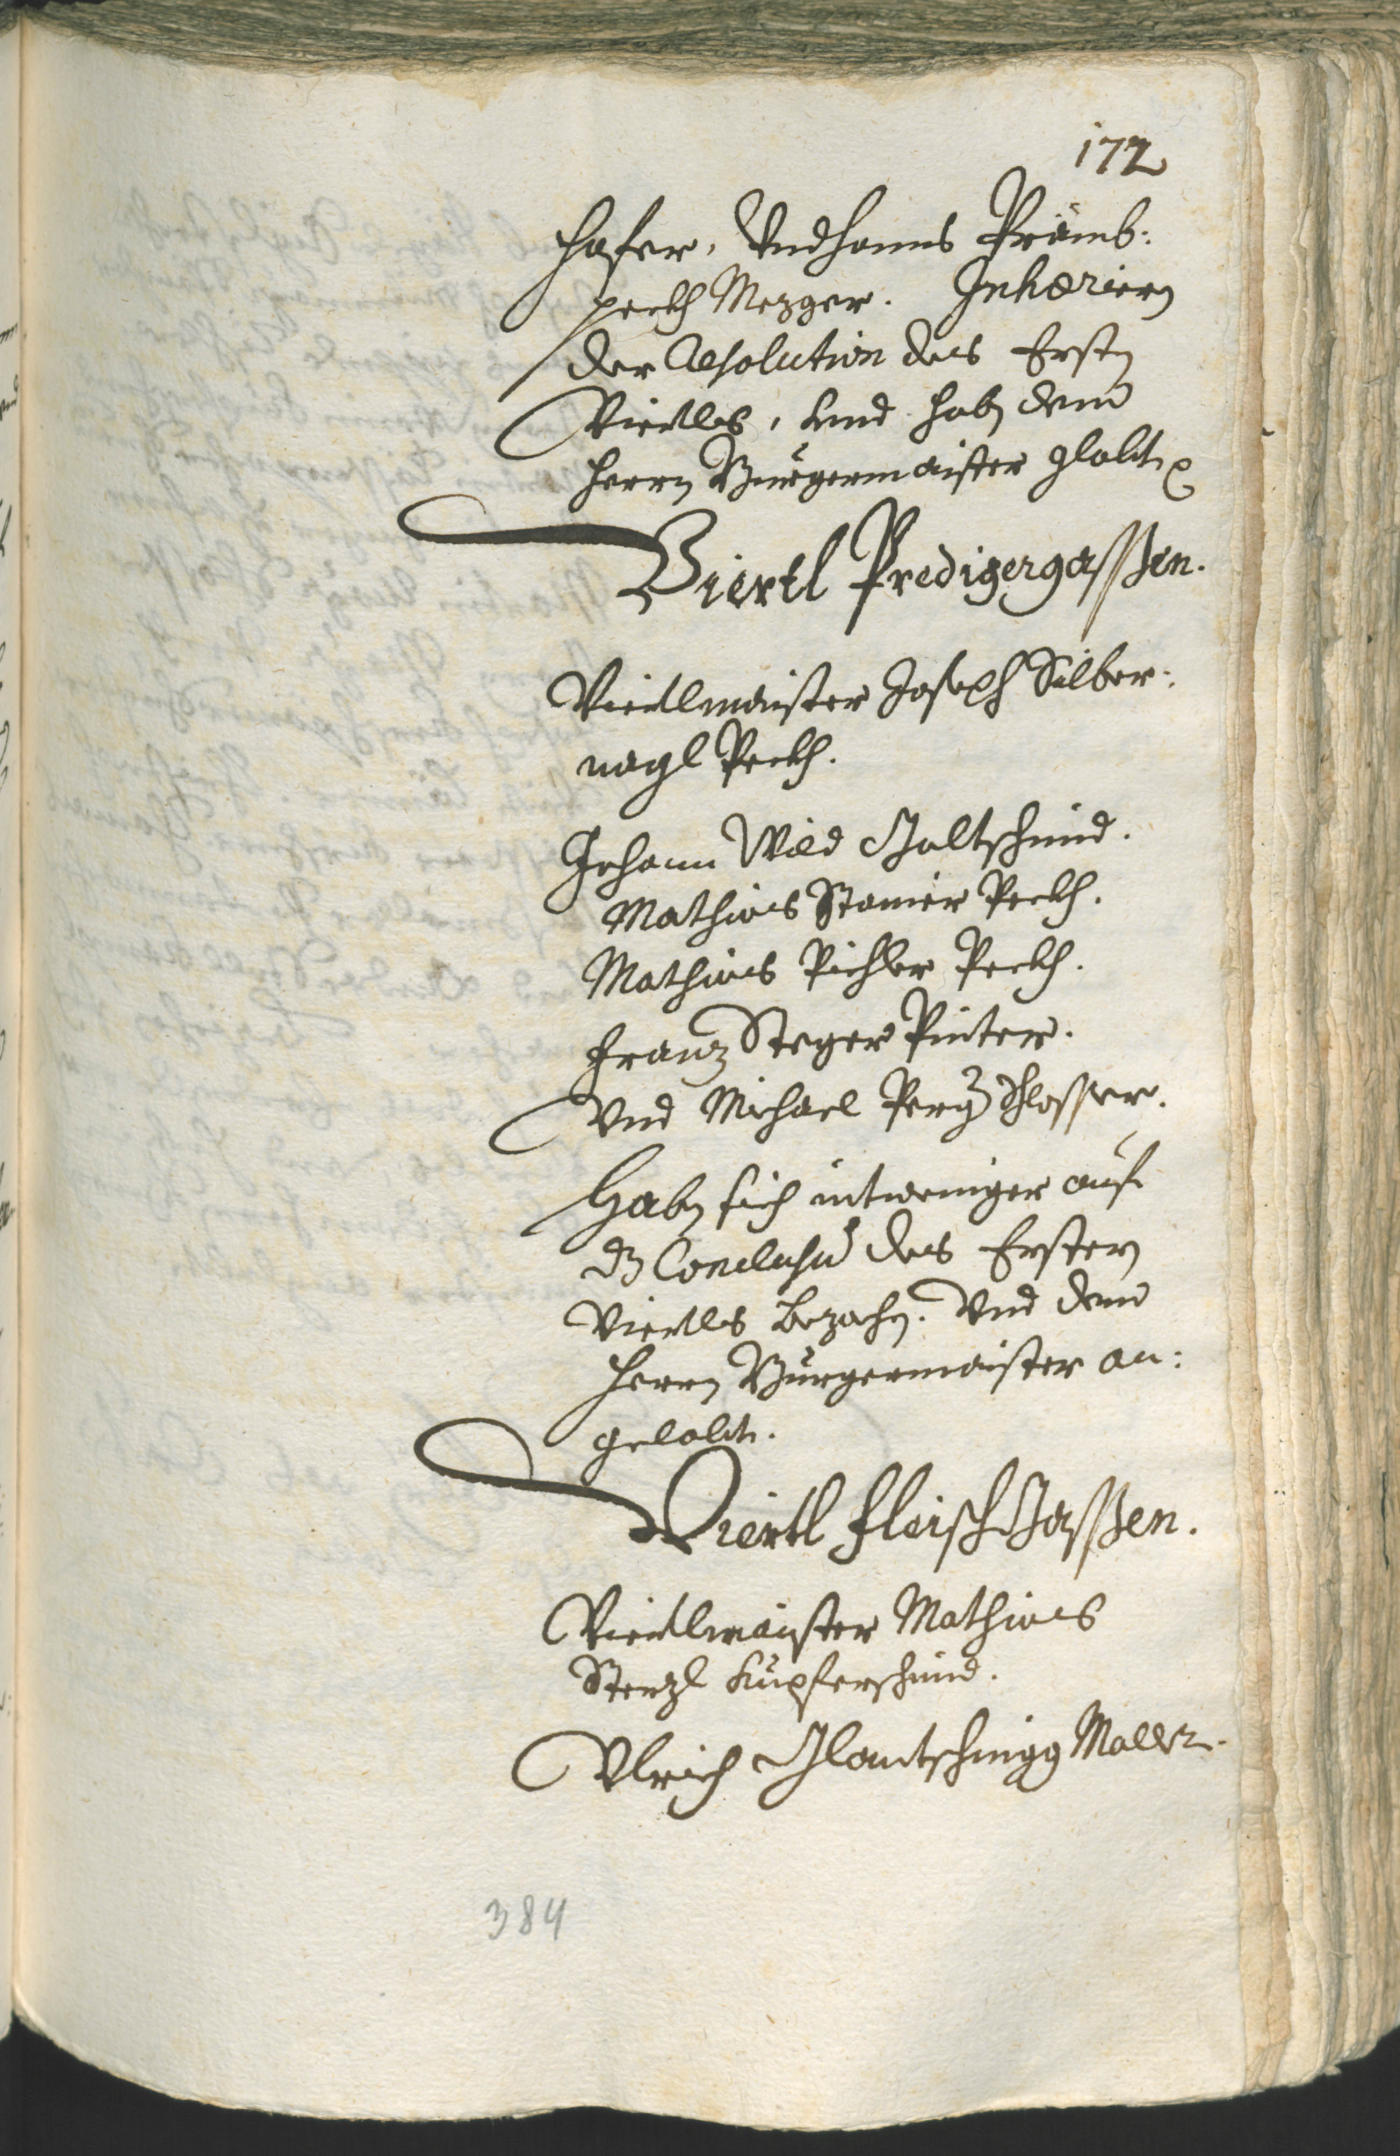 172
hafer, Vnd hanns Pramb:
perkh Mezger. Inhæriern
der Resolution des Erstn
Viertls, Vnd habn dem
Herrn Burgermaister globt
Viertl Predigergassen.
Viertlmaister Joseph Silber:
nagl Peckh.
Johann Wild Goltschmid.
Mathias Stainer Peckh.
Mathias Pichler Peckh.
Franz Steger Pinter.
Vnd Michael Perg Schlosser.
Habn sich nitweniger auf
dz Conclusũ des Ersten
Viertls bezogn. Vnd dem
Herrn Burgermaister an:
gelobt.
Viertl fleischgassen.
Viertlmaister Mathias
Stenzl Kupferschmid.
Vlrich Glantschnigg Maller.
384